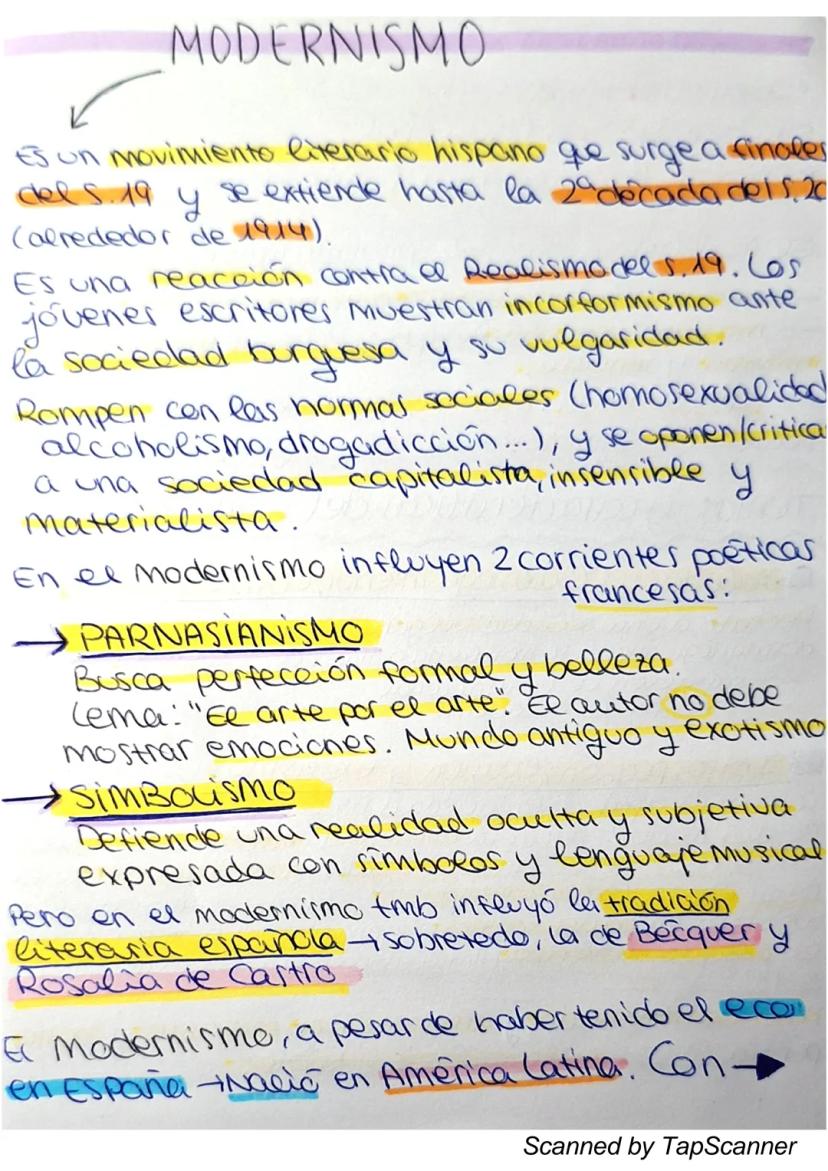 MODERNISMO
Es un movimiento literario hispano que surge a finales
del s.19 y se extiende hasta la 2ª década del s.20
(alrededor de 1914).
Es una reacción contra el Realismo del s.19. Los
jóvenes escritores muestran incorformismo ante
la sociedad burguesa y su vulgaridad.
Rompen con las normas sociales (homosexualidad
alcoholismo, drogadicción...), y se oponen/critica
a una sociedad capitalista, insensible y
materialista.
En el Modernismo influyen 2 corrientes poéticas
francesas:
→ PARNASIANISMO
Busca perfección formal y belleza.
Lema: "El arte por el arte". El autor no debe
mostrar emociones. Mundo antiguo y exotismo
→ SIMBOLISMO
Defiende una realidad oculta y subjetiva
expresada con símbolos y lenguaje musical
Pero en el modernismo tmb influyó la tradición
literaria española → sobretodo, la de Bécquer y
Rosalía de Castro
El Modernismo, a pesar de haber tenido el eco
en España → Nació en América Latina. Con →
Scanned by TapScanner